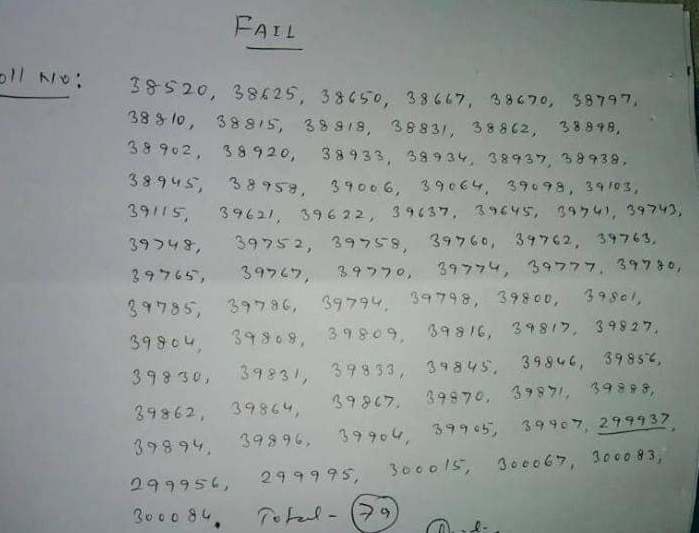 FAIL
oll No:
38520, 38625, 38650, 38667, 38670, 38797,
38810, 38815, 38818, 38831, 38862, 38898,
38902, 38920, 38933, 38934, 38937, 38938.
38945, 38958, 39006, 39064, 39098, 39103,
39115, 39621, 39622, 39637, 39645, 39741, 39743,
39748, 39752, 39758, 39760, 39762, 39763.
39765, 39767, 39770, 39774, 39777, 39780,
39785, 39786, 39794, 39798, 39800, 39801,
39804, 39808, 39809, 39816, 39817, 39827,
39830, 39831, 39833, 39845, 39846, 39856,
39862, 39864, 39867, 39870, 39871, 39888,
39894, 39896, 39904, 39905, 39907, 299937,
299956, 299995, 300015, 300067, 300083,
300084. Total - 79